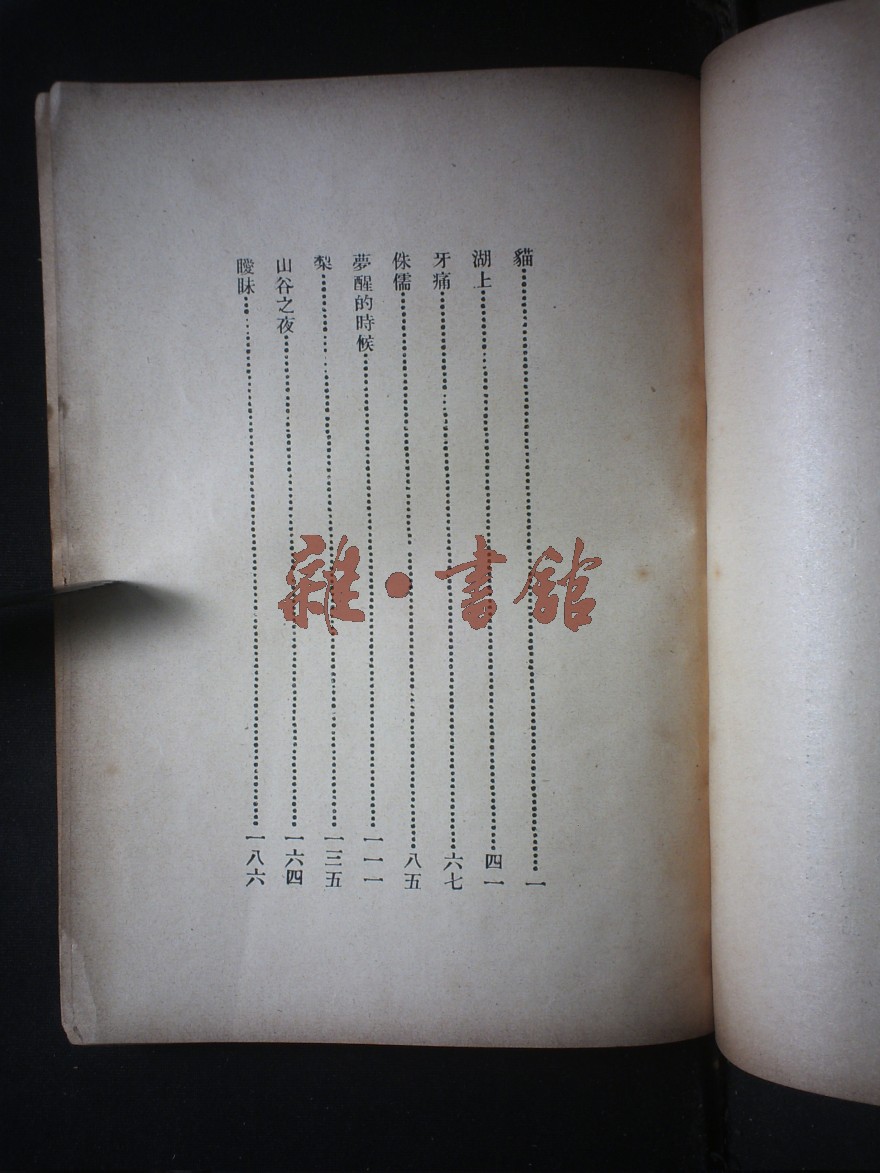 貓⋯⋯一
湖上⋯⋯四一
牙痛⋯⋯六七
侏儒⋯⋯八五
夢醒的時候⋯⋯一一一
梨⋯⋯一三五
山谷之夜⋯⋯一六四
曖昧⋯⋯一八六
雜·書館